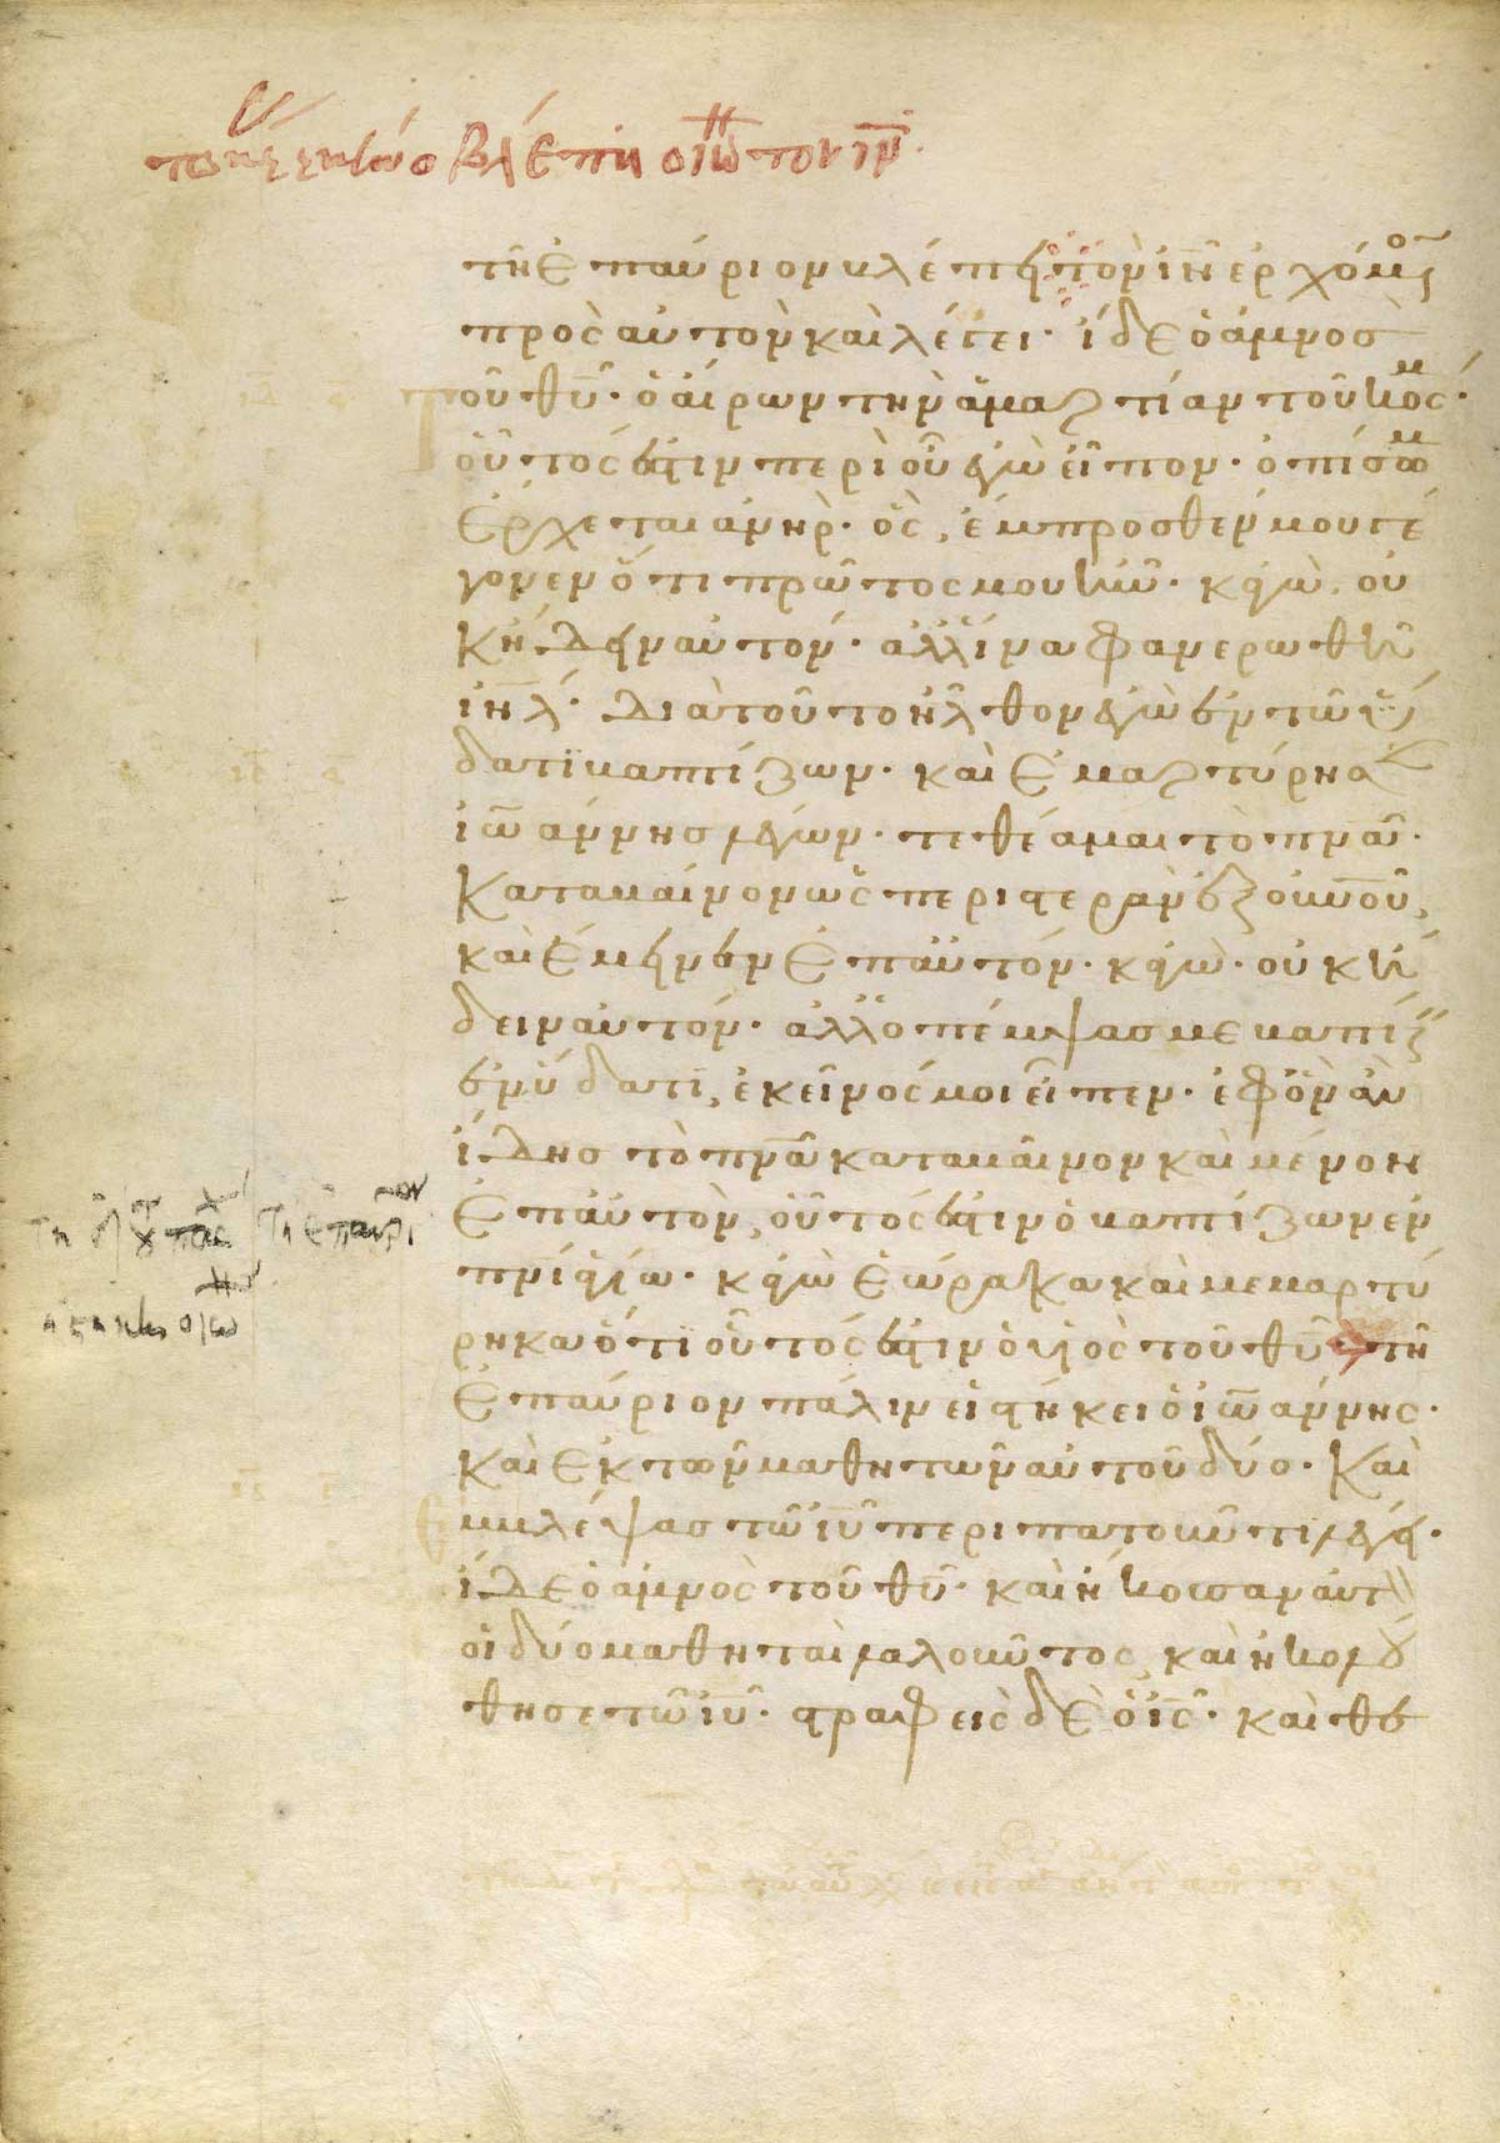 βλέπει ὁ ιω τον ιν
τῆ ἐπαύριον βλέπει τὸν ιν ἐρχόμενον
πρὸς αὐτὸν καὶ λέγει· ἴδε ὁ ἀμνοσ
τοῦ θυ· ὁ αἴρων τὴν ἁμαρτίαν τοῦ κόσμ·
οὗτός ἐστιν περὶ οὗ ἐγὼ εἶπον· ὀπίσω μ
ἔρχεται ἀνὴρ· ὃς, ἔμπροσθέν μου γέ
γονεν ὅτι πρῶτος μου ἦν· κἀγὼ, οὐ
κ ἤδειν αὐτόν· ἀλλ ἵνα φανερωθῆ
ιηλ· διὰ τοῦτο ἦλθον ἐγὼ ἐν τῶ ὕ
δατι βαπτίζων· καὶ ἐμαρτύρησε
ἰωάννησ λέγων· τεθέαμαι τὸ πνα·
καταβαίνον ὡς περιστερὰν ἐξ οὐνοῦ,
καὶ ἔμεινεν ἐπ αὐτόν· κἀγὼ· οὐκ ἤ
δειν αὐτόν· ἀλλ ὁ πέμψασ με βαπτίζ
ἐν ὕδατι, ἐκεῖνός μοι εἶπεν· ἐφ ὃν ἂν
ἴδησ τὸ πνα καταβαῖνον καὶ μένον
ἐπ αὐτὸν, οὗτός ἐστιν ὁ βαπτίζων ἐν
πνι ἁγίω· κἀγὼ ἑώρακα καὶ μεμαρτύ
ρηκα ὅτι οὗτός ἐστιν ὁ υἱὸς τοῦ θυ· τῆ
ἐπαύριον πάλιν εἱστήκει ὁ ἰωάννης·
καὶ ἐκ τῶν μαθητῶν αὐτοῦ δύο· καὶ
ἐμβλέψασ τῶ ιυ περιπατοῦντι λέγει·
ἴδε ὁ ἀμνὸς τοῦ θυ· καὶ ἤκουσαν αὐτ
οἱ δύο μαθηταὶ λαλοῦντος, καὶ ἠκολού
θησε τῶ ιυ· στραφεὶς δὲ ὁ ις· καὶ θε